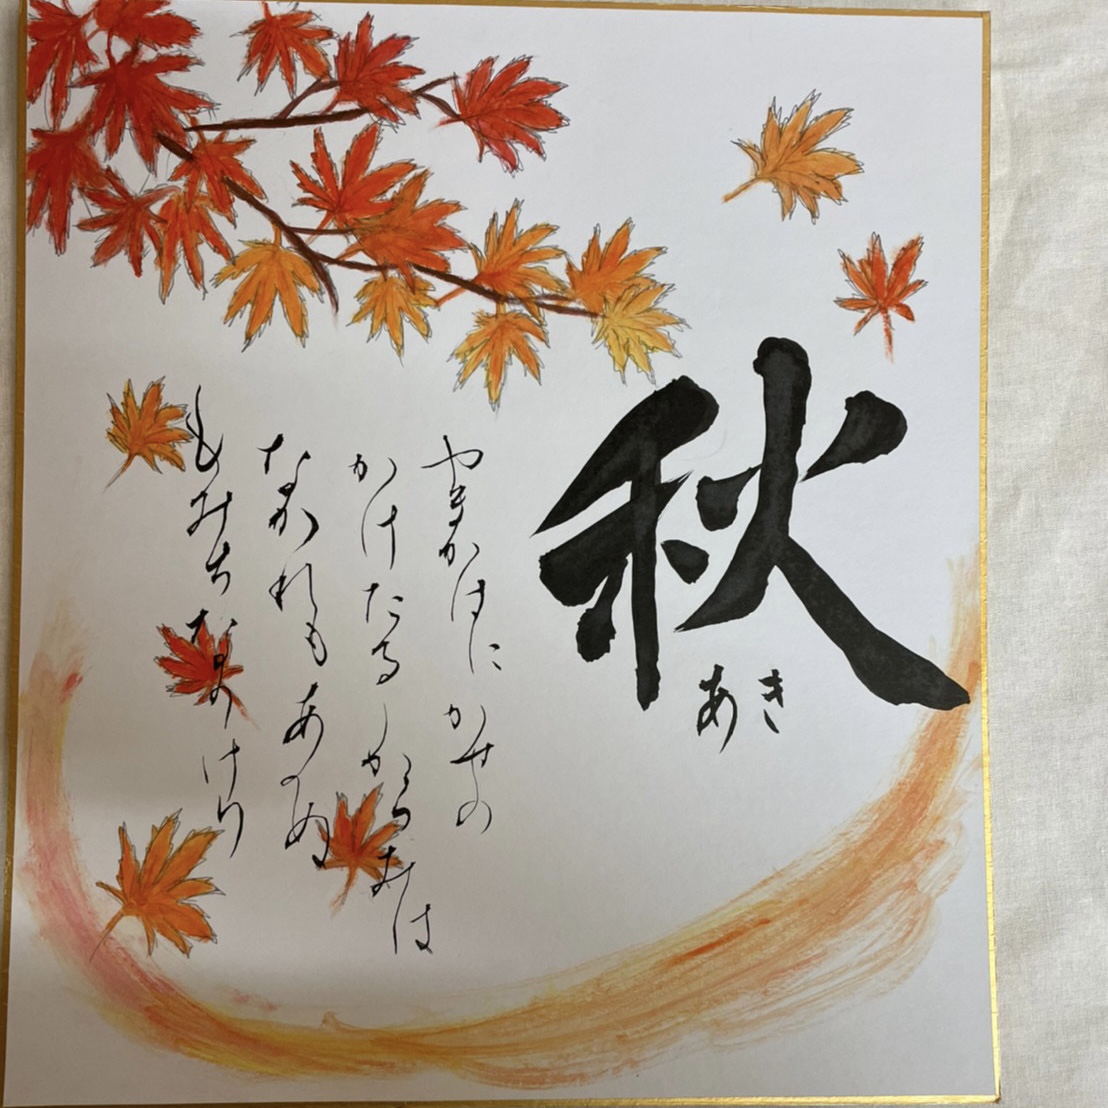 秋
あき
やまかはに かせの
かけたる しからみは
なかれも あへぬ
もみちなりけり